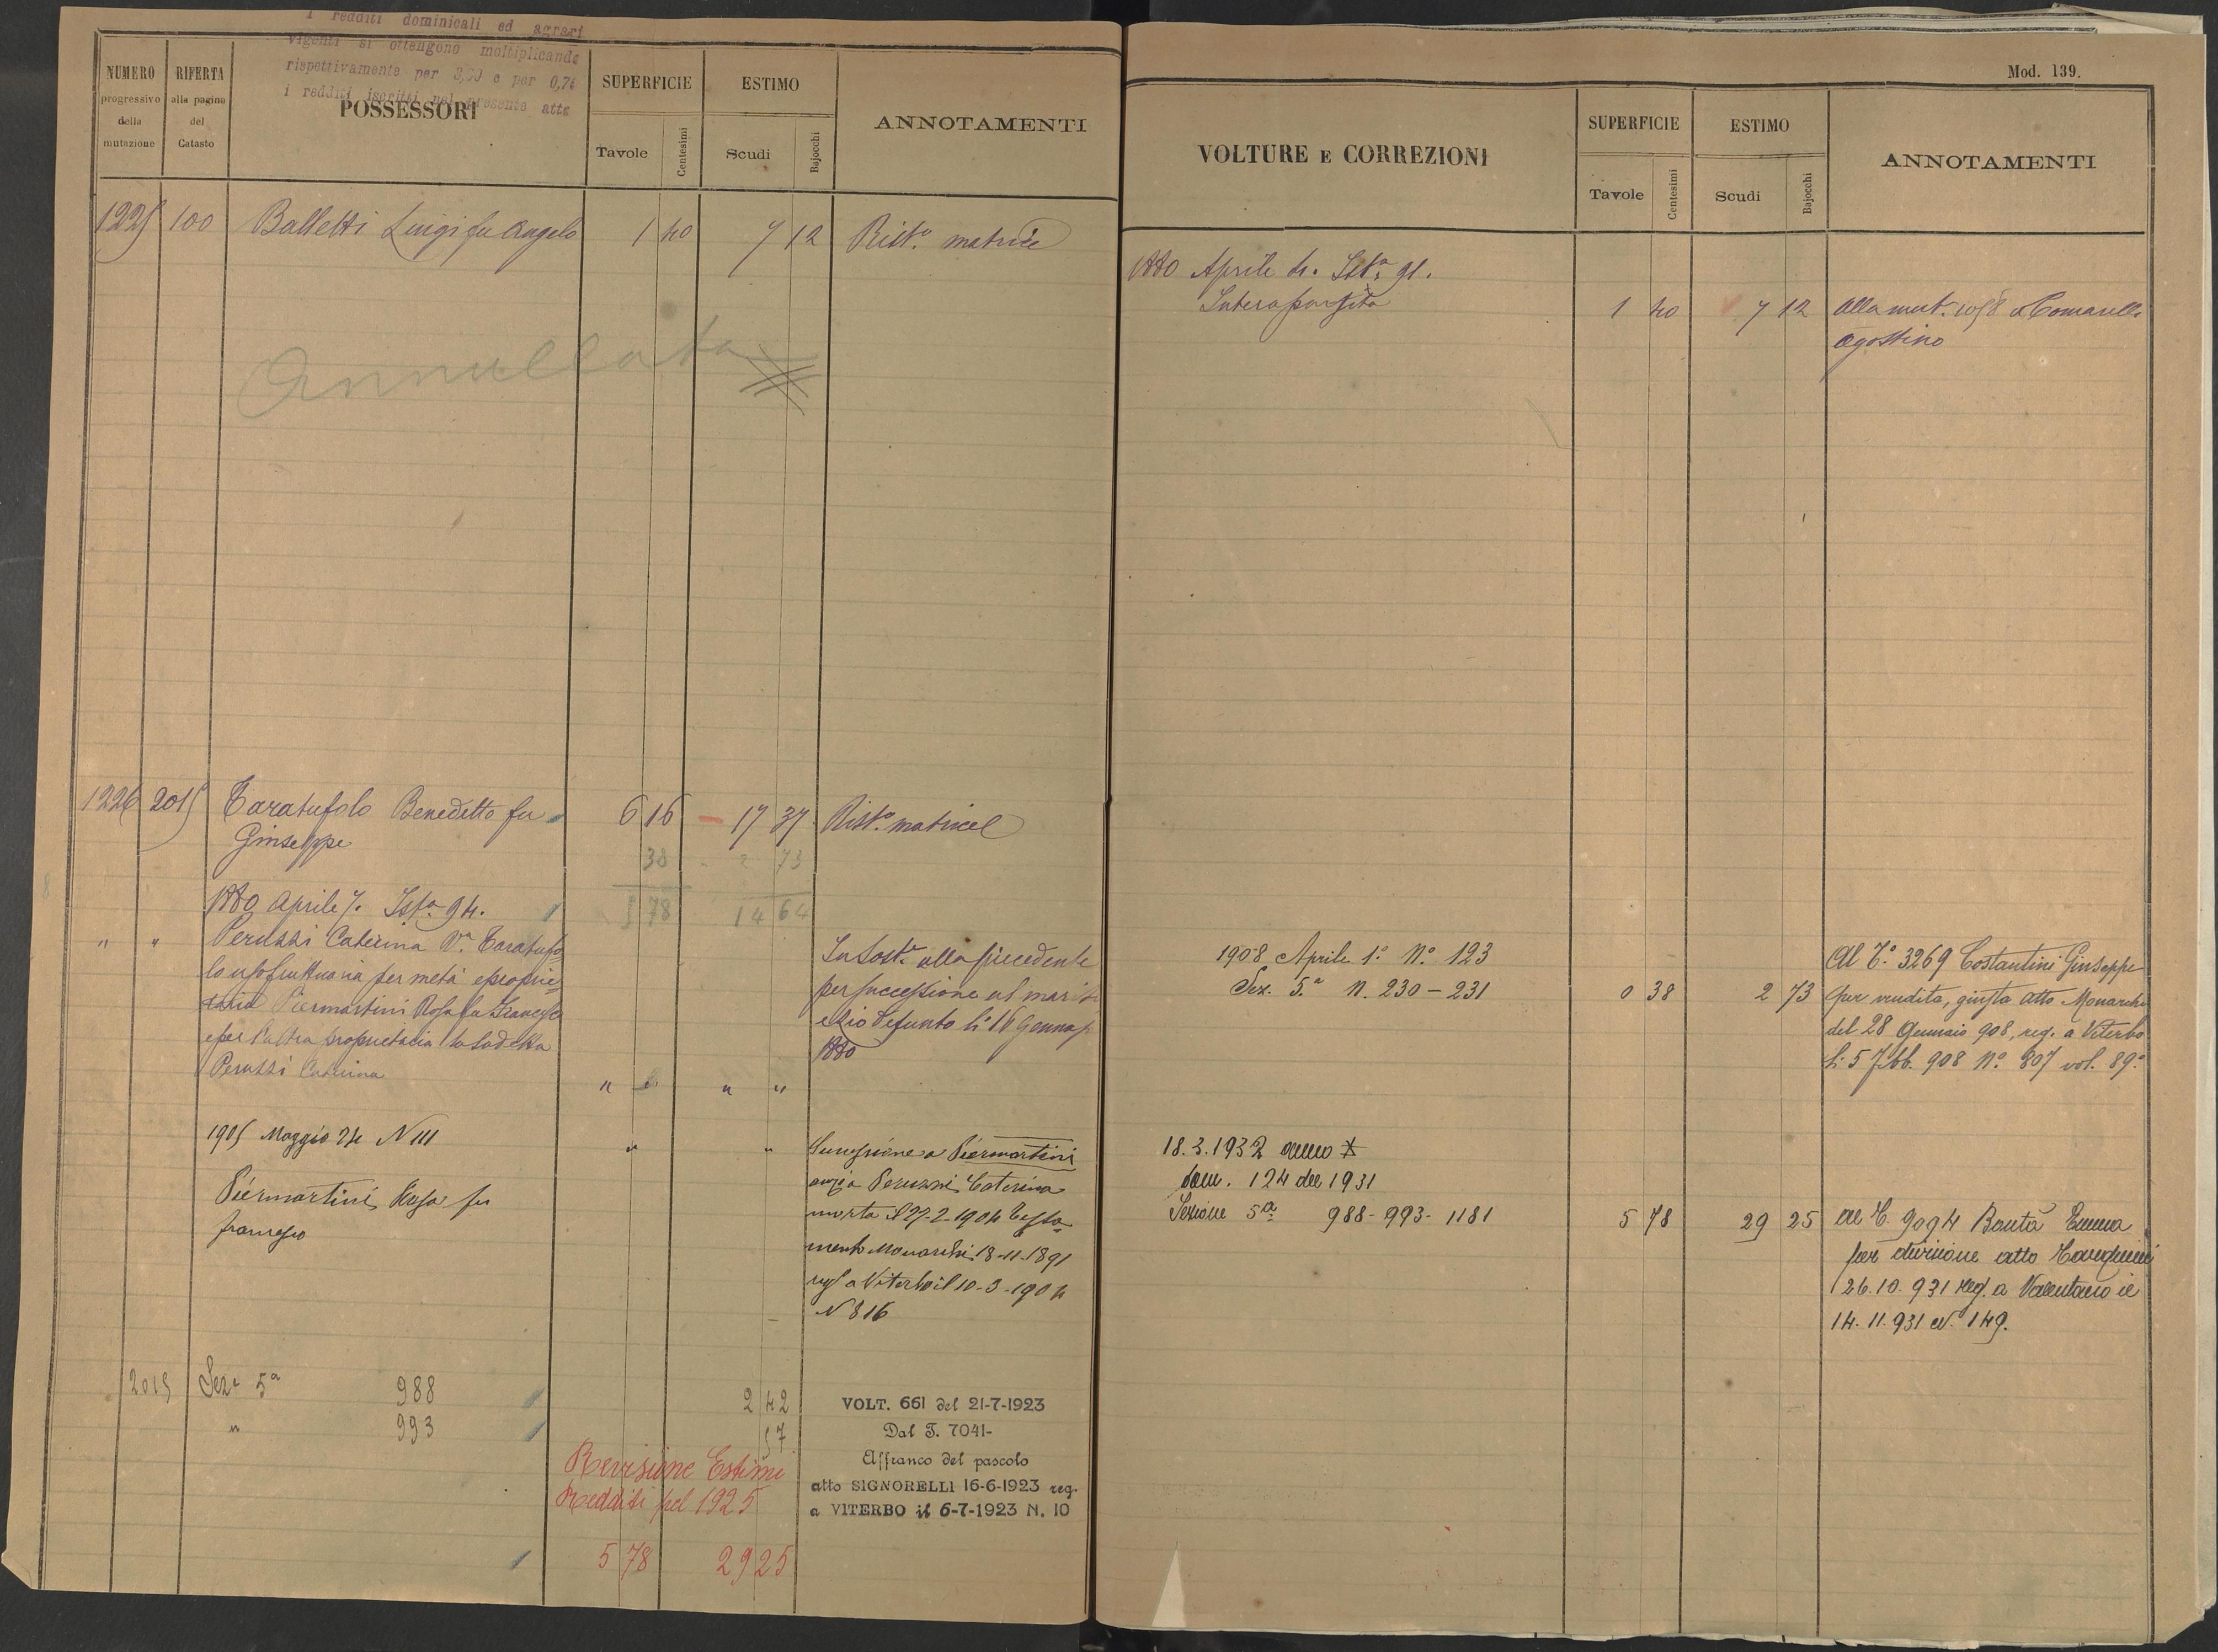 I redditi dominicali ed agrari
vigenti si ottengono moltiplicando
rispettivamente per 3,00 e per 0,74
i redditi iscritti nel presente atto
NUMERO progressivo della mutazione
RIFERTA alla pagina del Catasto
POSSESSORI
SUPERFICIE
Tavole Centesimi
ESTIMO
Scudi Bajocchi
ANNOTAMENTI
1225 100 Balletti Luigi fu Angelo 1 40 7 12 Rist.o matrice
Annullata
1226 2015 Taratufolo Benedetto fu 6 16 17 37 Rist.o matrice
Giuseppe
38 2 73
5 78 14 64
1880 Aprile 7. Ist.a 94.
" " Peruzzi Caterina V.a Taratufo
lo usufruttuaria per metà e proprie
taria Piermartini Rosa fu Francesco
e per l'altra proprietaria la sudetta
Peruzzi Caterina
" " " "
In sost.e alla precedente
per successione al marito
e zio defunto li 16 Gennajo
1880
1905 Maggio 24 N 111 " "
Piermartini Rosa fu
Francesco
Successione a Piermartini
anzi a Peruzzi Caterina
morta il 27-2-1904 Testa
mento Monarchi 18-11-1891
reg a Viterbo il 10-3-1904
N 816
2015 Sez.e 5a 988 2 42
" 993 57
VOLT. 661 del 21-7-1923
Dal T. 7041-
Affranco del pascolo
atto SIGNORELLI 16-6-1923 reg.
a VITERBO il 6-7-1923 N. 10
Revisione Estimi
Redditi pel 1925
5 78 29 25
Mod. 139.
VOLTURE E CORREZIONI
SUPERFICIE
Tavole Centesimi
ESTIMO
Scudi Bajocchi
ANNOTAMENTI
1880 Aprile 4. Ist.a 91.
Intera partita 1 40 7 12 Alla mut. 1058
Agostino
1908 Aprile 1° N° 123
Sez. 5.a N. 230 - 231 0 38 2 73
Al T.° 3269 Costantini Giuseppe
per vendita, giusta atto Monarchi
del 28 Gennaio 908, reg. a Viterbo
li 5 Febb. 908 N° 807 vol. 89°
18.3.1932 anno X
124 del 1931
Sezione 5a 988 - 993 - 1181 5 78 29 25
al T. 9094 Bautà Emma
per divisione atto Tarquini
26.10.931 reg. a Valentano il
14.11.931 N. 149.